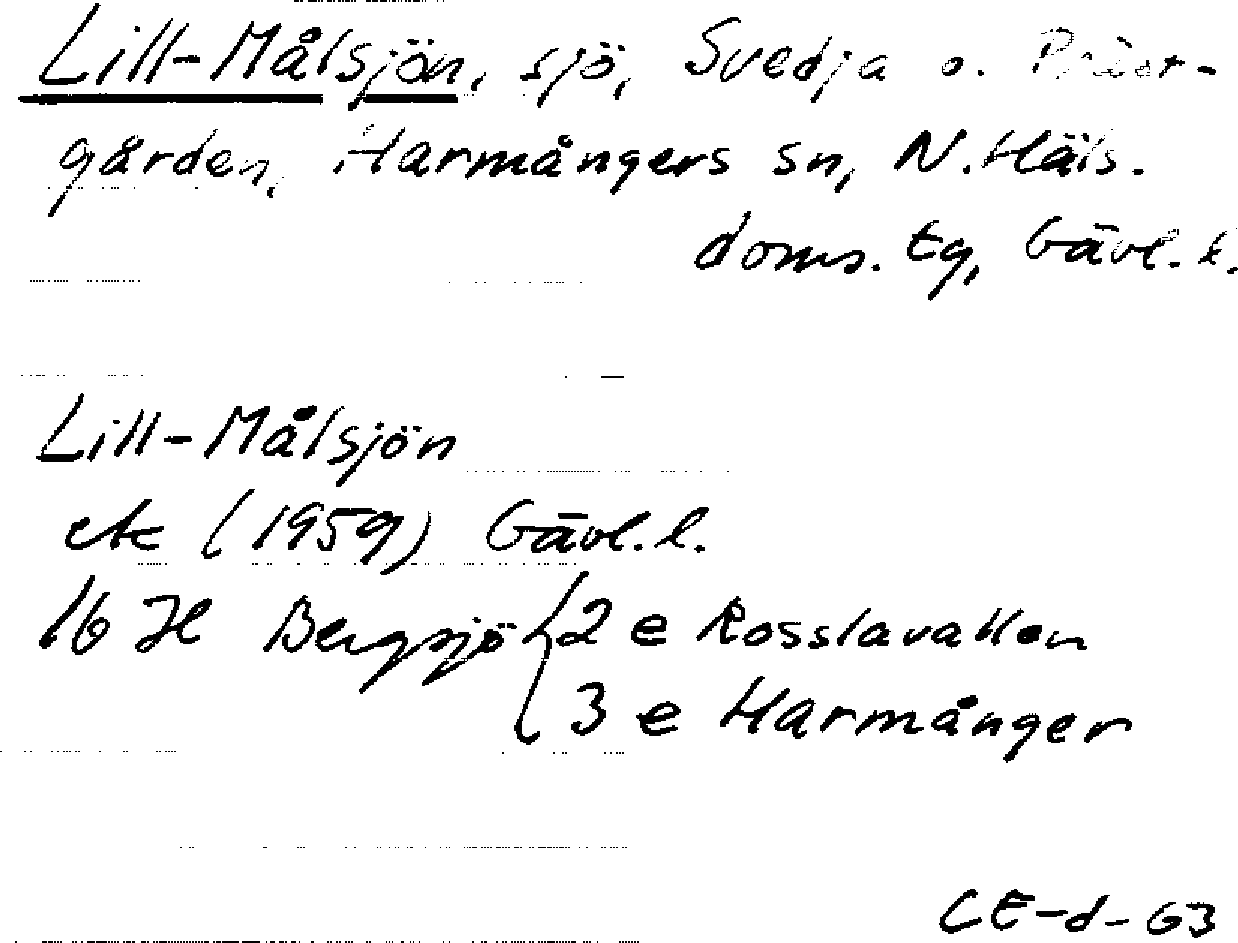 Lill-Målsjön, sjö, Svedja o. Präst-
gården, Harmångers sn, N. Häls.
doms. tg, Gävl. l.
Lill-Målsjön
ek (1959) Gävl. l.
16 H Bergsjö { 2 e Rosslavallen
3 e Harmånger
CE-d-63